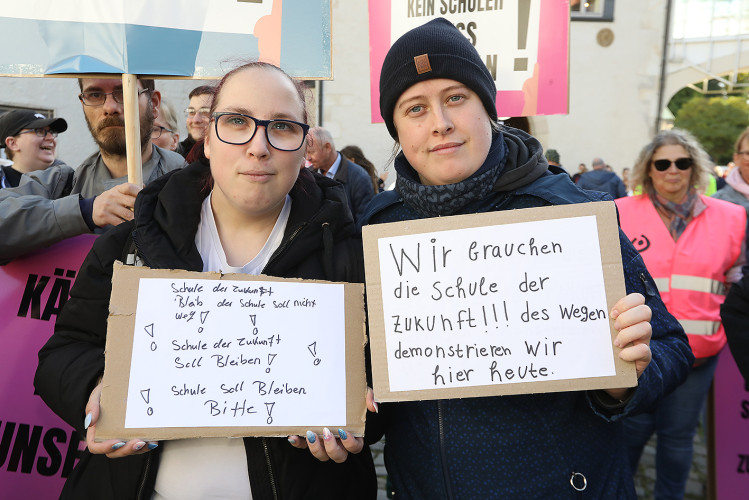 KEIN SCHÜLER
!
KÄ
UNSE
Schule der Zukunft
Bleib der Schule soll nicht
weg!
Schule der Zukunft
Soll Bleiben!
Schule Soll Bleiben
Bitte!
Wir brauchen
die Schule der
Zukunft!!! des Wegen
demonstrieren Wir
hier heute.